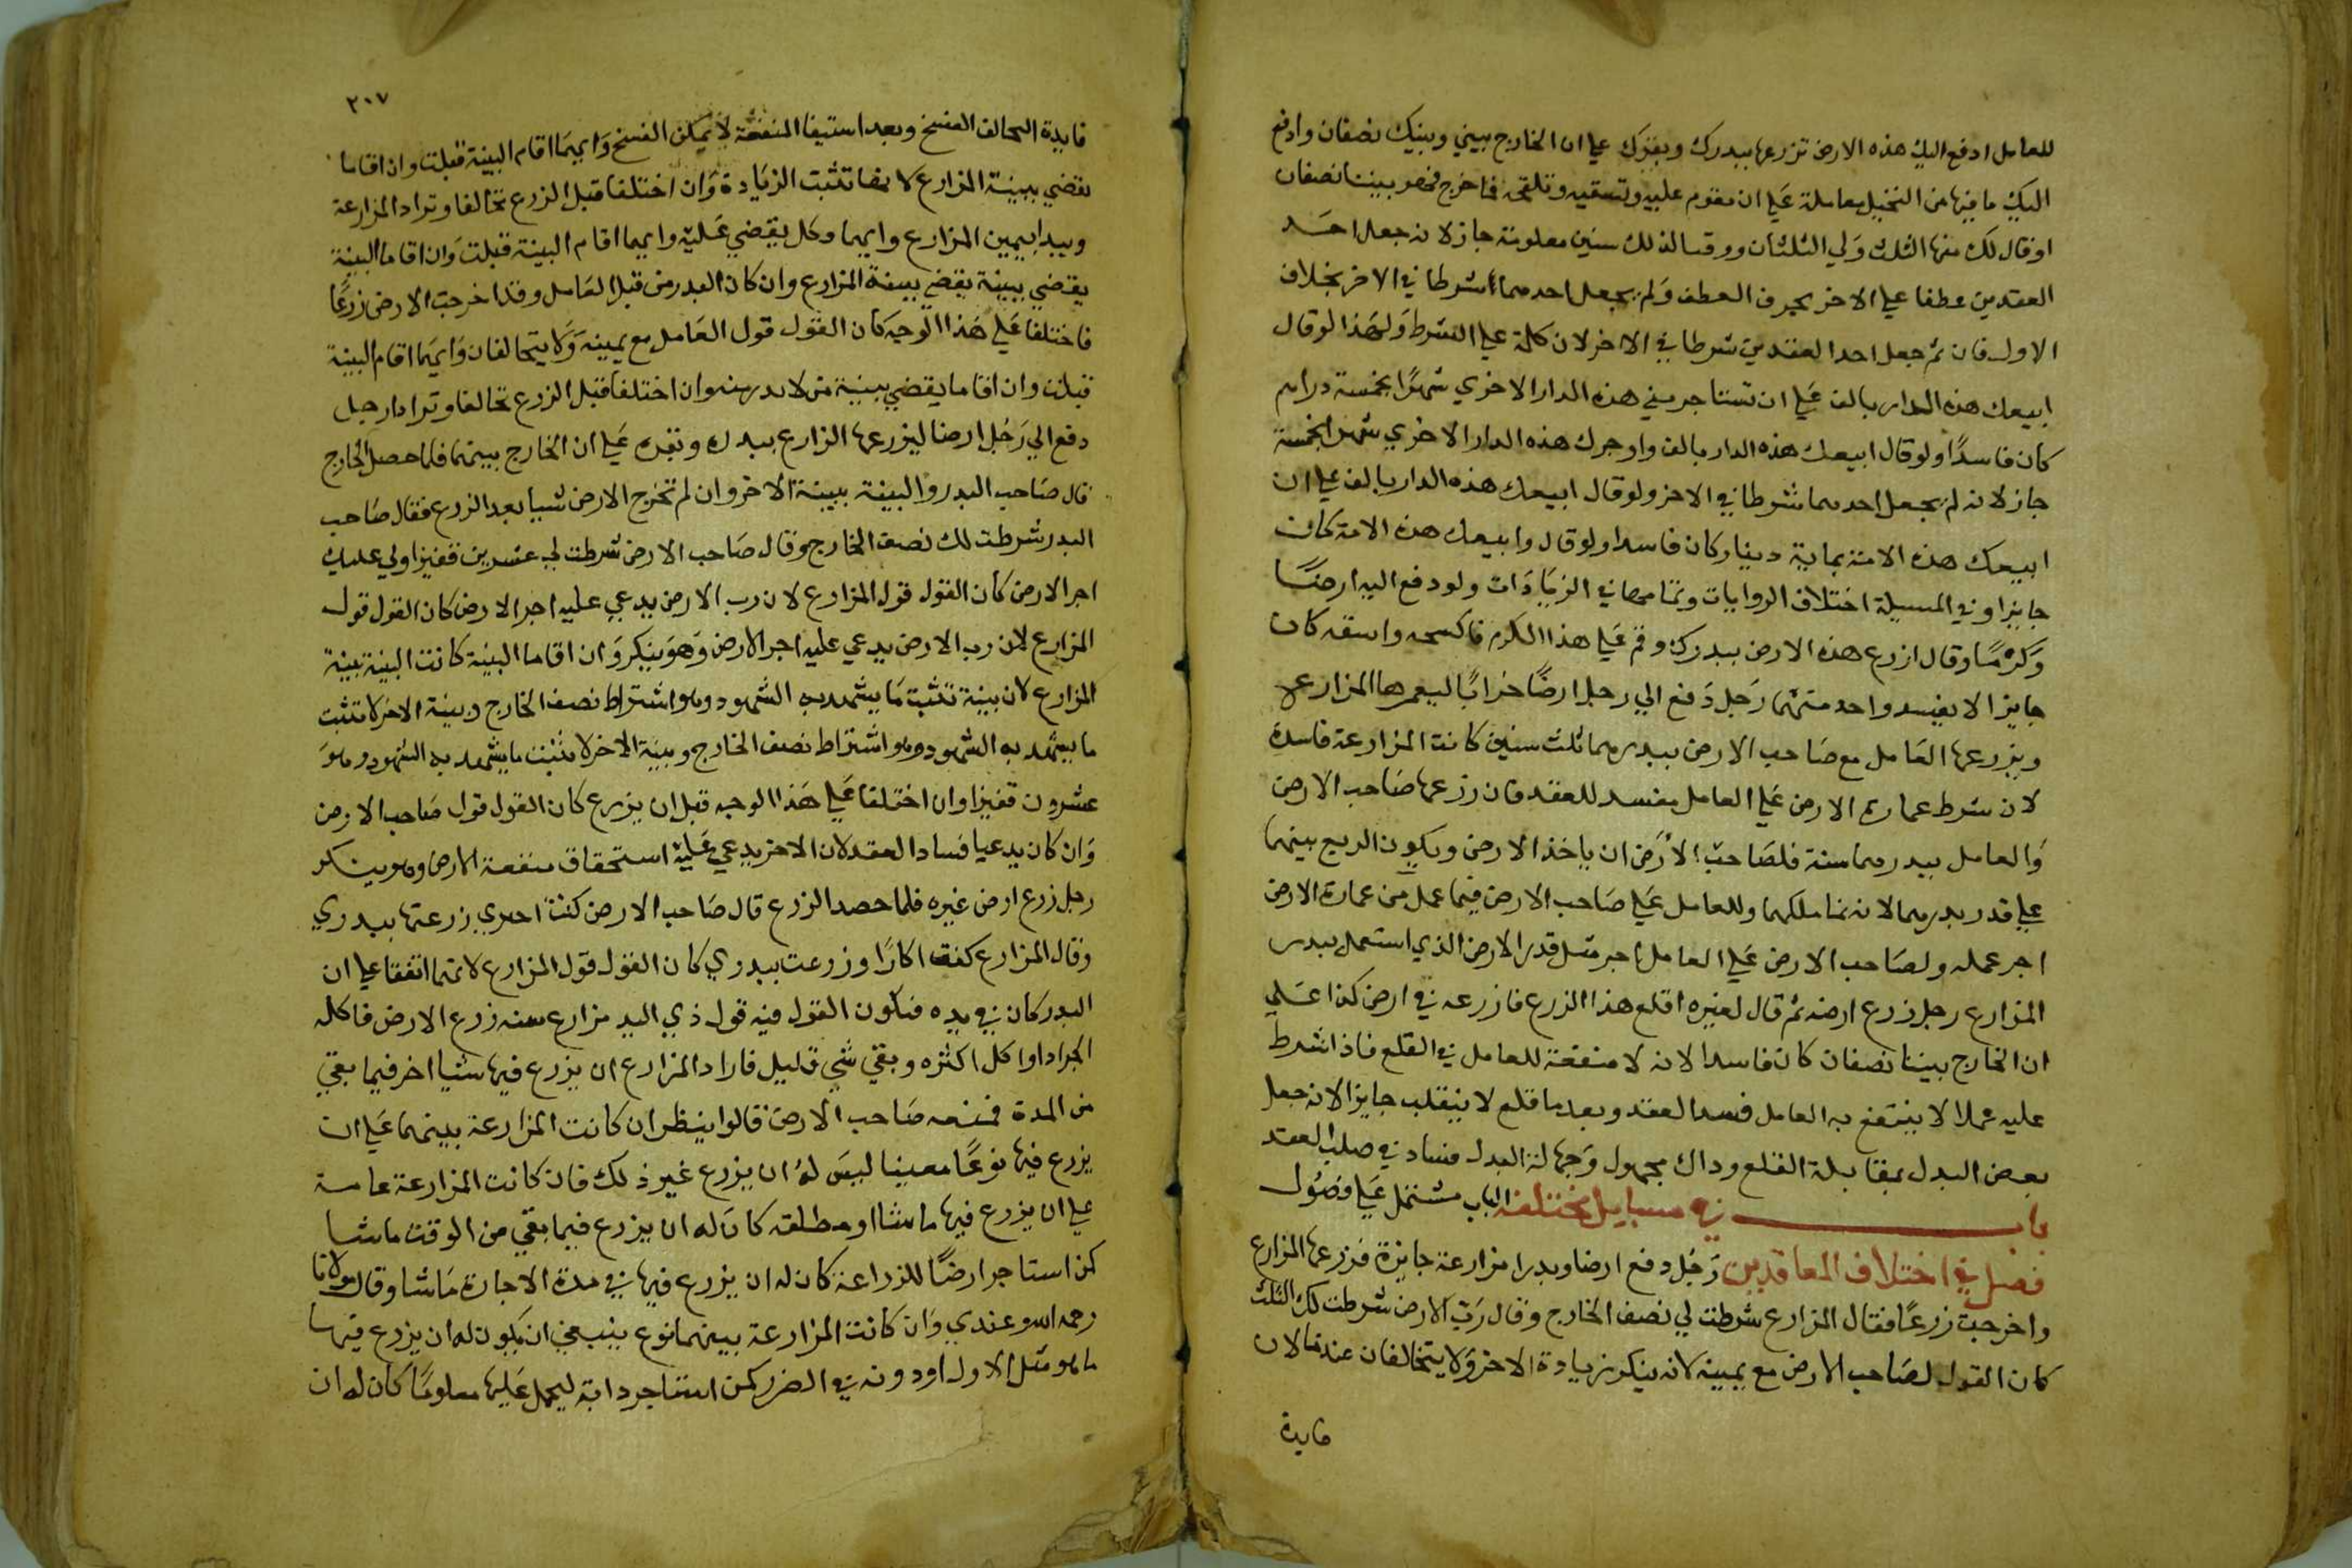 للعامل ادفع اليك هذه الارض تزرعها ببدرك وبقرك علي ان الخارج بيني وبينك نصفان وادفع
اليك ما فيها من النخيل معاملة علي ان تقوم عليه وتسقيه وتلقحه فما خرج فهو بيننا نصفان
او قال لك منها الثلث ولي الثلثان ووقتا لذلك سنين معلومة جاز لانه جعل احد
العقدين عطفا علي الاخر بحرف العطف ولم يجعل احدهما شرطا في الاخر بخلاف
الاول فان ثم جعل احد العقدين شرطا في الاخر لان كلمة علي الشرط ولهذا لو قال
ابيعك هذه الدار بالف علي ان تستاجر مني هذه الدار الاخري شهرا بخمسة دراهم
كان فاسدا ولو قال ابيعك هذه الدار بالف واوجرك هذه الدار الاخري شهرا بخمسة
جاز لانه لم يجعل احدهما شرطا في الاخر ولو قال ابيعك هذه الدار بالف علي ان
ابيعك هذه الامة بماية دينار كان فاسدا ولو قال وابيعك هذه الامة كان
جايزا وفي المسيلة اختلاف الروايات وتمامها في الزيادات ولو دفع اليه ارضا
وكرما وقال ازرع هذه الارض ببدرك وقم علي هذا الكرم فاكسحه واسقه كان
جايزا لا يفسد واحد منهما رجل دفع الي رجل ارضا خرابا ليعمرها المزارع
ويزرعها العامل مع صاحب الارض ببدرهما ثلث سنين كانت المزارعة فاسدة
لان شرط عمارة الارض علي العامل مفسد للعقد فان زرعها صاحب الارض
والعامل ببدرهما سنة فلصاحب الارض ان ياخذ الارض ويكون الربع بينهما
علي قدر بدرهما لانه نما ملكهما وللعامل علي صاحب الارض فيما عمل من عمارة الارض
اجر عمله ولصاحب الارض علي العامل اجر مثل قدر الارض الذي استعمل ببدر
المزارع رجل زرع ارضه ثم قال لغيره اقلع هذا الزرع فازرعه في ارض كذا علي
ان الخارج بيننا نصفان كان فاسدا لانه لا منفعة للعامل في القلع فاذا شرط
عليه عملا لا ينتفع به العامل فسد العقد وبعد ما قلع لا ينقلب جايزا لانه جعل
بعض البدل بمقابلة القلع وداك مجهول وجهالة البدل فساد في صلب العقد
باب في مسايل مختلفة الباب مشتمل علي فصول
فصل في اختلاف المعاقدين رجل دفع ارضا وبدرا مزارعة جايزة فزرعها المزارع
واخرجت زرعا فقال المزارع شرطت لي نصف الخارج وقال رب الارض شرطت لك الثلث
كان القول لصاحب الارض مع يمينه لانه ينكر زيادة الاخر ولا يتحالفان عندنا لان
فايدة
٢٠٧
فايدة التحالف الفسخ وبعد استيفا المنفعة لا يمكن الفسخ وايهما اقام البينة قبلت وان اقاما
يقضي ببينة المزارع لانها تثبت الزيادة وان اختلفا قبل الزرع تحالفا وترادا المزارعة
ويبدا بيمين المزارع وايهما وكل يقضي عليه وايهما اقام البينة قبلت وان اقاما البينة
يقضي ببينة يقضي ببينة المزارع وان كان البدر من قبل العامل وقد اخرجت الارض زرعا
فاختلفا علي هذا الوجه كان القول قول العامل مع يمينه ولا يتحالفان وايهما اقام البينة
قبلت وان اقاما يقضي ببينة من لا بدر منه وان اختلفا قبل الزرع تحالفا وترادا رجل
دفع الي رجل ارضا ليزرعها الزارع ببدره وبقره علي ان الخارج بينهما فلما حصل الخارج
قال صاحب البدر والبينة ببينة الاخر وان لم تخرج الارض شيا بعد الزرع فقال صاحب
البدر شرطت لك نصف الخارج وقال صاحب الارض شرطت لي عشرين قفيزا ولي عليك
اجر الارض كان القول قول المزارع لان رب الارض يدعي عليه اجر الارض كان القول قول
المزارع لان رب الارض يدعي عليه اجر الارض وهو ينكر وان اقاما البينة كانت البينة بينة
المزارع لان بينة تثبت ما يشهد به الشهود وهو اشتراط نصف الخارج وبينة الاخر لا تثبت
ما يشهد به الشهود وهو اشتراط نصف الخارج وبينة الاخر لا تثبت ما يشهد به الشهود وهو
عشرون قفيزا وان اختلفا علي هذا الوجه قبل ان يزرع كان القول قول صاحب الارض
وان كان يدعيا فساد العقد لان الاخر يدعي عليه استحقاق منفعة الارض وهو ينكر
رجل زرع ارض غيره فلما حصد الزرع قال صاحب الارض كنت اجيري زرعتها ببدري
وقال المزارع كنت اكارا وزرعت ببدري كان القول قول المزارع لانهما اتفقا علي ان
البدر كان في يده فيكون القول فيه قول ذي اليد مزارع سنة زرع الارض فاكله
الجراد او اكل اكثره وبقي شي قليل فاراد المزارع ان يزرع فيها شيا اخر فيما بقي
من المدة فمنعه صاحب الارض قالوا ينظر ان كانت المزارعة بينهما علي ان
يزرع فيها نوعا معينا ليس له ان يزرع غير ذلك فان كانت المزارعة عامة
علي ان يزرع فيها ما شا او مطلقه كان له ان يزرع فيما بقي من الوقت ما شا
كمن استاجر ارضا للزراعة كان له ان يزرع فيها في مدة الاجارة ما شا وقال مولانا
رحمه الله وعندي وان كانت المزارعة بينهما نوع ينبغي ان يكون له ان يزرع فيها
ما هو مثل الاول او دونه في الضرر كمن استاجر دابة ليحمل عليها معلوما كان له ان